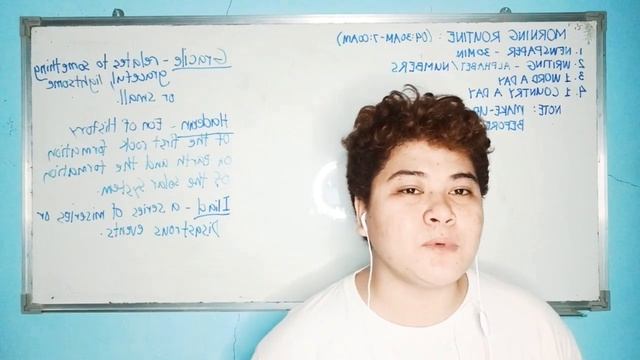 MORNING ROUTINE: (04:30AM-7:00AM)
1. NEWSPAPER - 30MIN
2. WRITING - ALPHABET/NUMBERS
3. 1 WORD A DAY
4. 1 COUNTRY A DAY
NOTE: MAKE-UP
BEFORE
Gracile - relates to something
graceful, lightsome
or small.
Hadean - Eon of History
of the first rock formation
on Earth and the formation
of the solar system.
Iliad - a series of miseries or
Disastrous events.